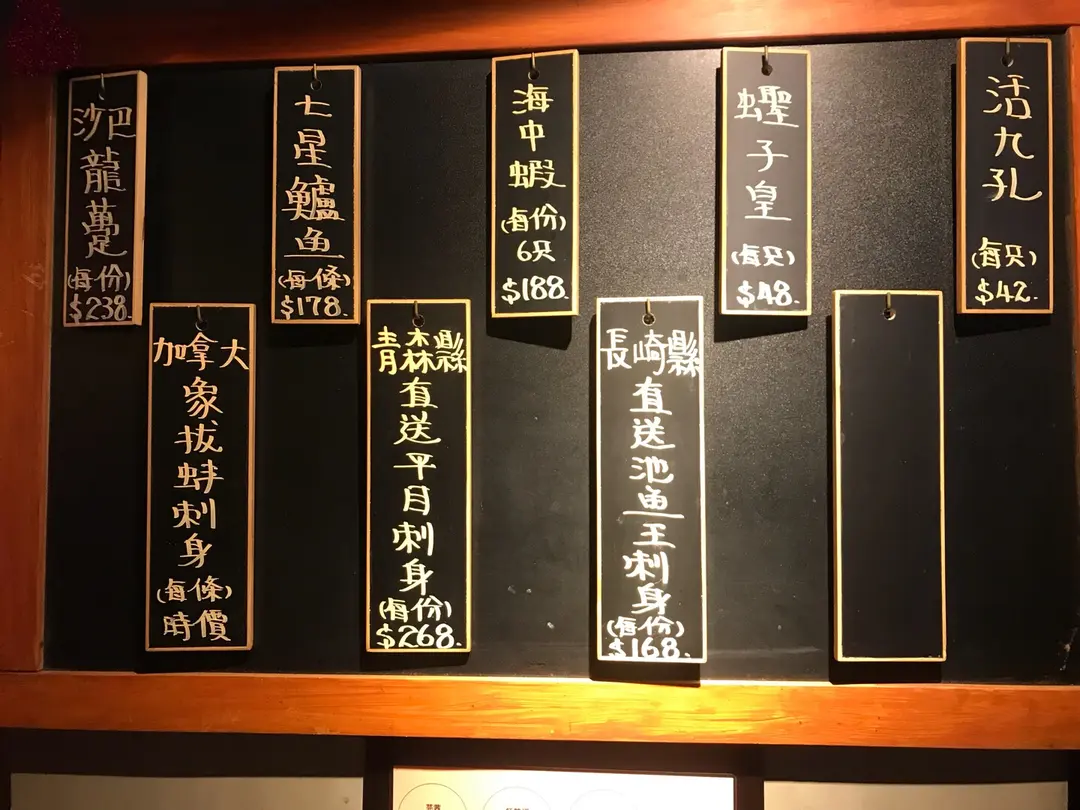 沙巴
龍躉
(每份)
$238.
七星鱸魚
(每條)
$178.
海中蝦
(每份)
6只
$188.
蟶子皇
(每只)
$48.
活九孔
(每只)
$42.
加拿大
象拔蚌刺身
(每條)
時價
青森縣
直送平目刺身
(每份)
$268.
長崎縣
直送池魚王刺身
(每份)
$168.